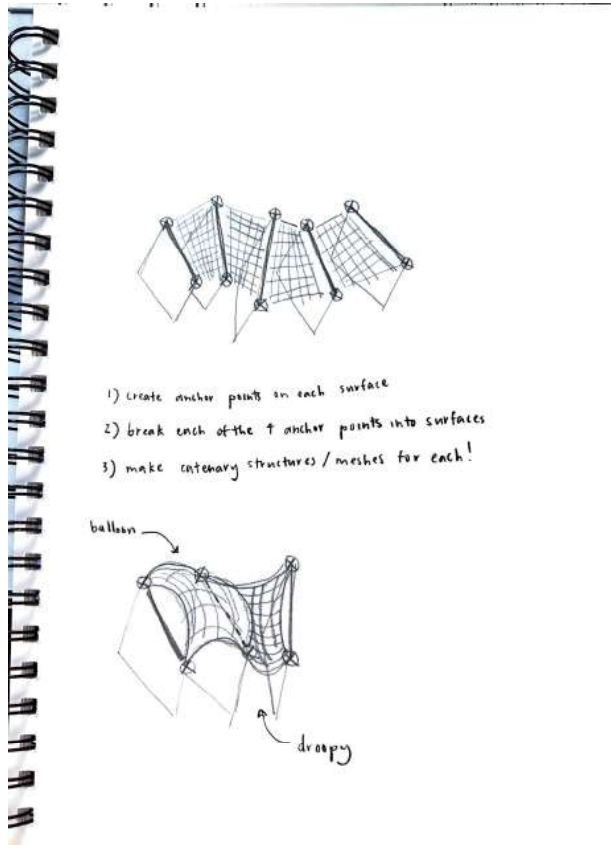 1) create anchor points on each surface
2) break each of the 4 anchor points into surfaces
3) make catenary structures / meshes for each!
balloon
droopy